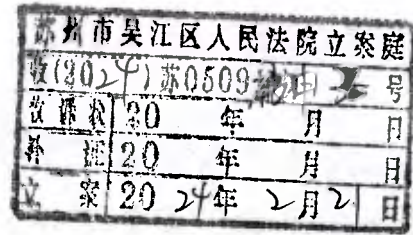 苏州市吴江区人民法院立案庭
收(2024)苏0509 申 号
收诉状 20 年 月 日
补 20 年 月 日
立 案 2024年2月2日